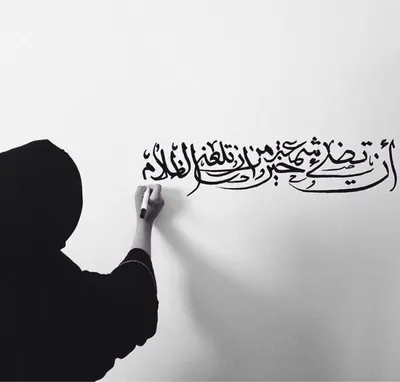 أن تضيء شمعة خير من أن تلعن الظلام